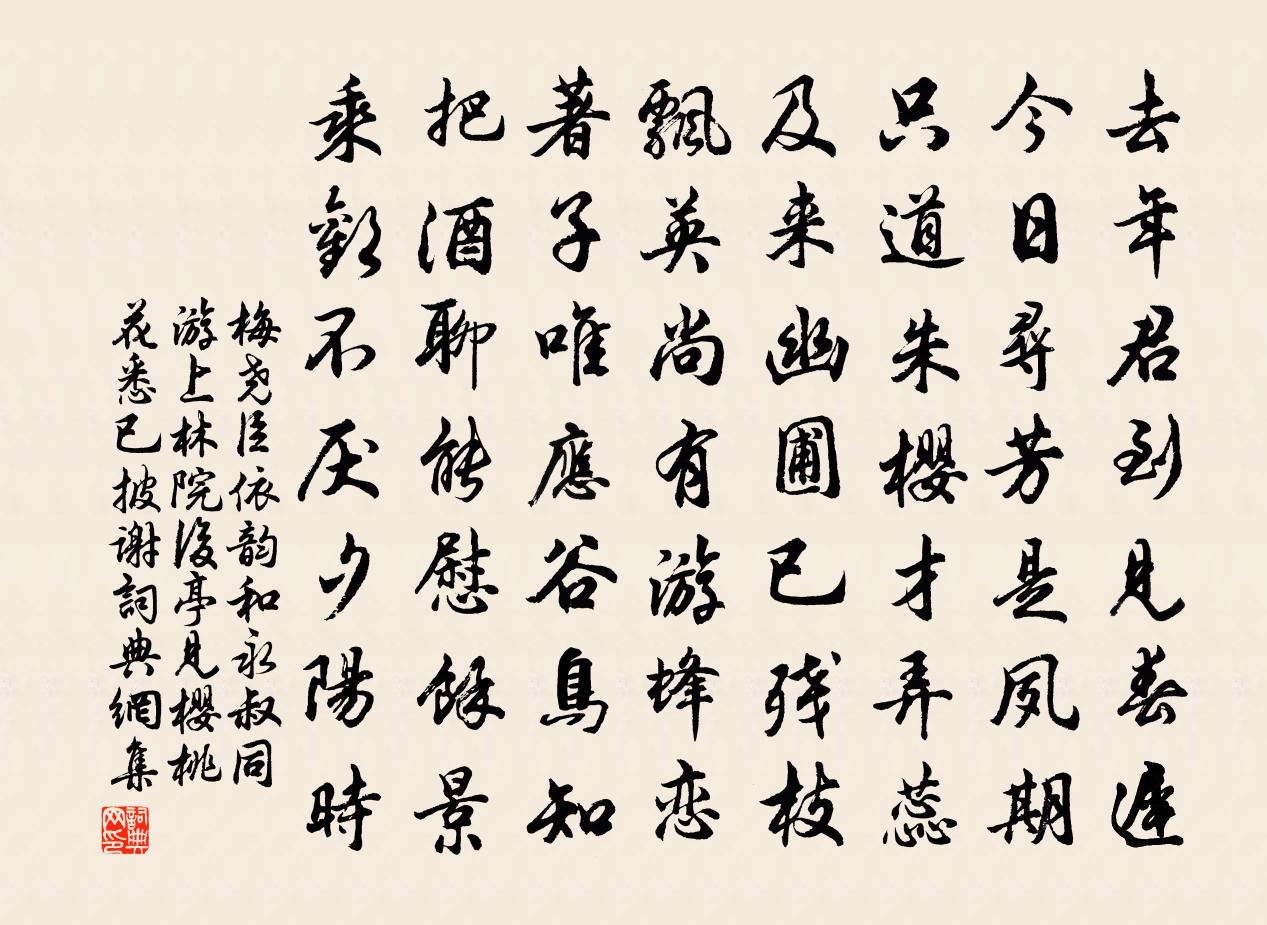 去年君到見春遲
今日尋芳是夙期
只道朱櫻才弄蕊
及来幽圃已残枝
飄英尚有游蜂恋
著子唯應谷鳥知
把酒聊能慰餘景
乘歡不厌夕陽時
梅尧臣依韵和永叔同
游上林院後亭見櫻桃
花悉已披谢詞典網集
詞典
网印